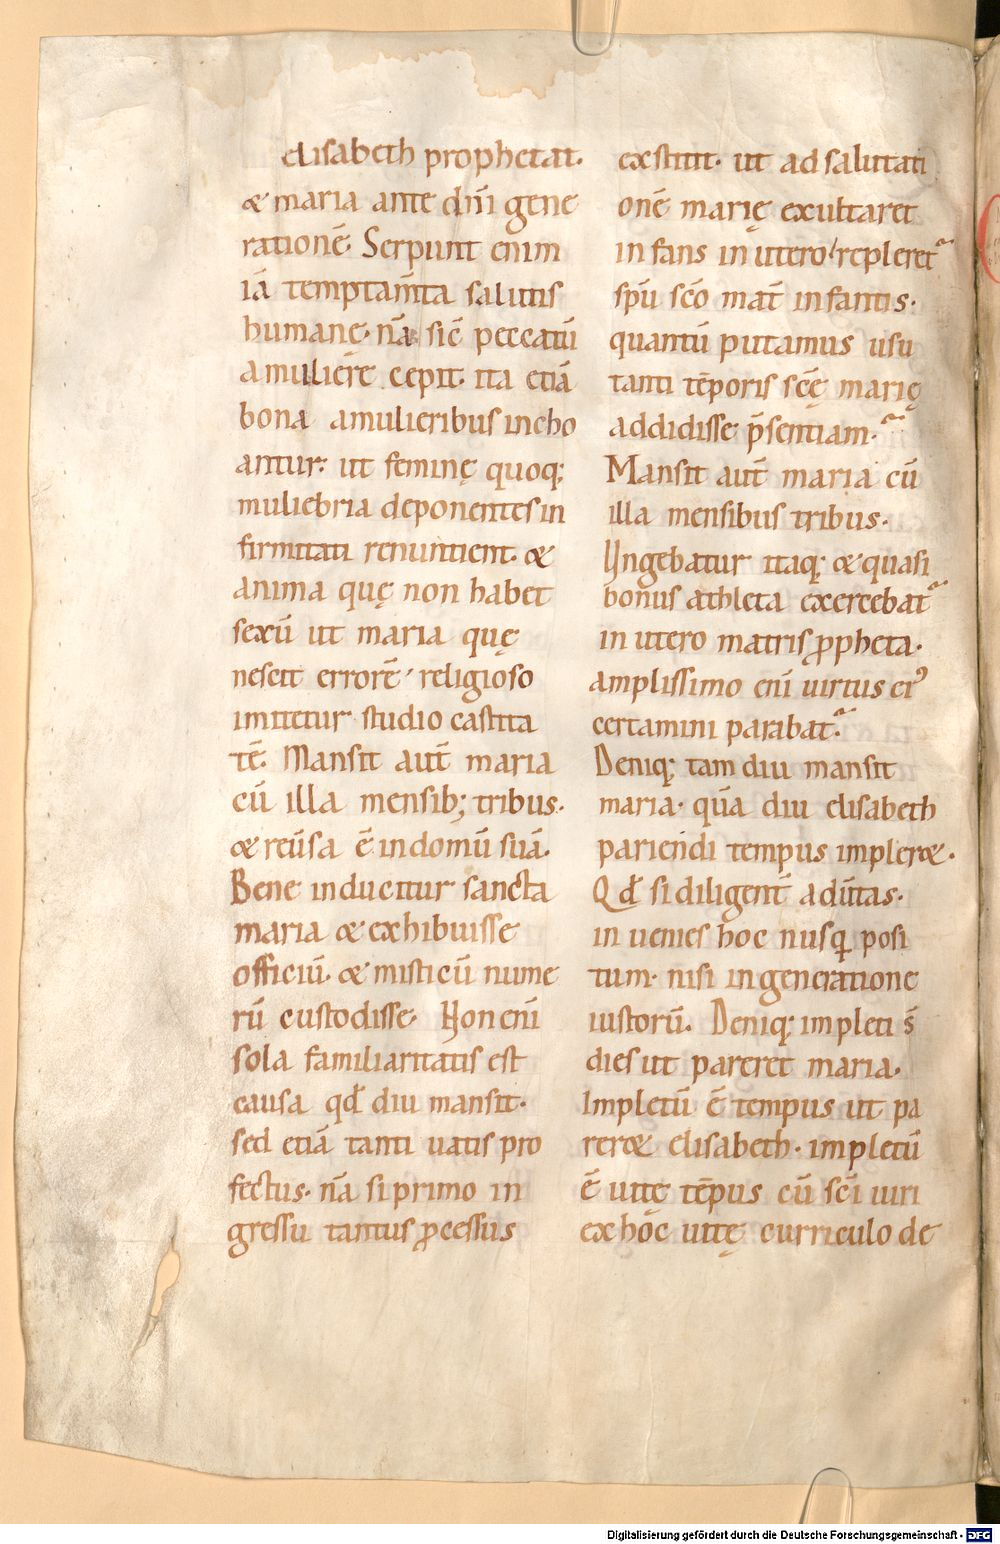 elisabeth prophetat.
& maria ante dn̄i gene
rationē. Serpunt enim
iā temptam̄ta salutis
humanę. nā sic̄ peccatū
a muliere cepit. ita etiā
bona a mulieribus incho
antur. ut feminę quoq;
muliebria deponentes in
firmitati renuntient. &
anima quę non habet
sexū ut maria quę
nescit errorē religioso
imitetur studio castita
tē. Mansit aut̄ maria
cū illa mensib; tribus.
& reūsa ē in domū suā.
Bene inducitur sancta
maria & exhibuisse
officiū. & misticū nume
rū custodisse. Non enī
sola familiaritatis est
causa qđ diu mansit.
sed etiā tanti uatis pro
fectus. nā si primo in
gressu tantus ꝓcessus
exstitit. ut ad salutati
onē marię exultaret
infans in utero repleret
spū scō mat̄ infantis.
quantū putamus usu
tanti tēporis scę̄ marię
addidisse p̄sentiam.
Mansit aut̄ maria cū
illa mensibus tribus.
Ungebatur itaq; & quasi
bonus athleta exercebat
in utero matris ꝓpheta.
amplissimo enī uirtus eiꝰ
certamini parabat.
Deniq; tam diu mansit
maria. quā diu elisabeth
pariendi tempus impler&.
Qđ si diligent̄ aduertas.
inuenies hoc nusꝗ posi
tum. nisi in generatione
iustorū. Deniq; impleti s̄
dies ut pareret maria.
Impletū ē tempus ut pa
rer& elisabeth. impletū
ē uitę tēpus cū scī uiri
ex hoc uitę curriculo de
Digitalisierung gefördert durch die Deutsche Forschungsgemeinschaft - DFG